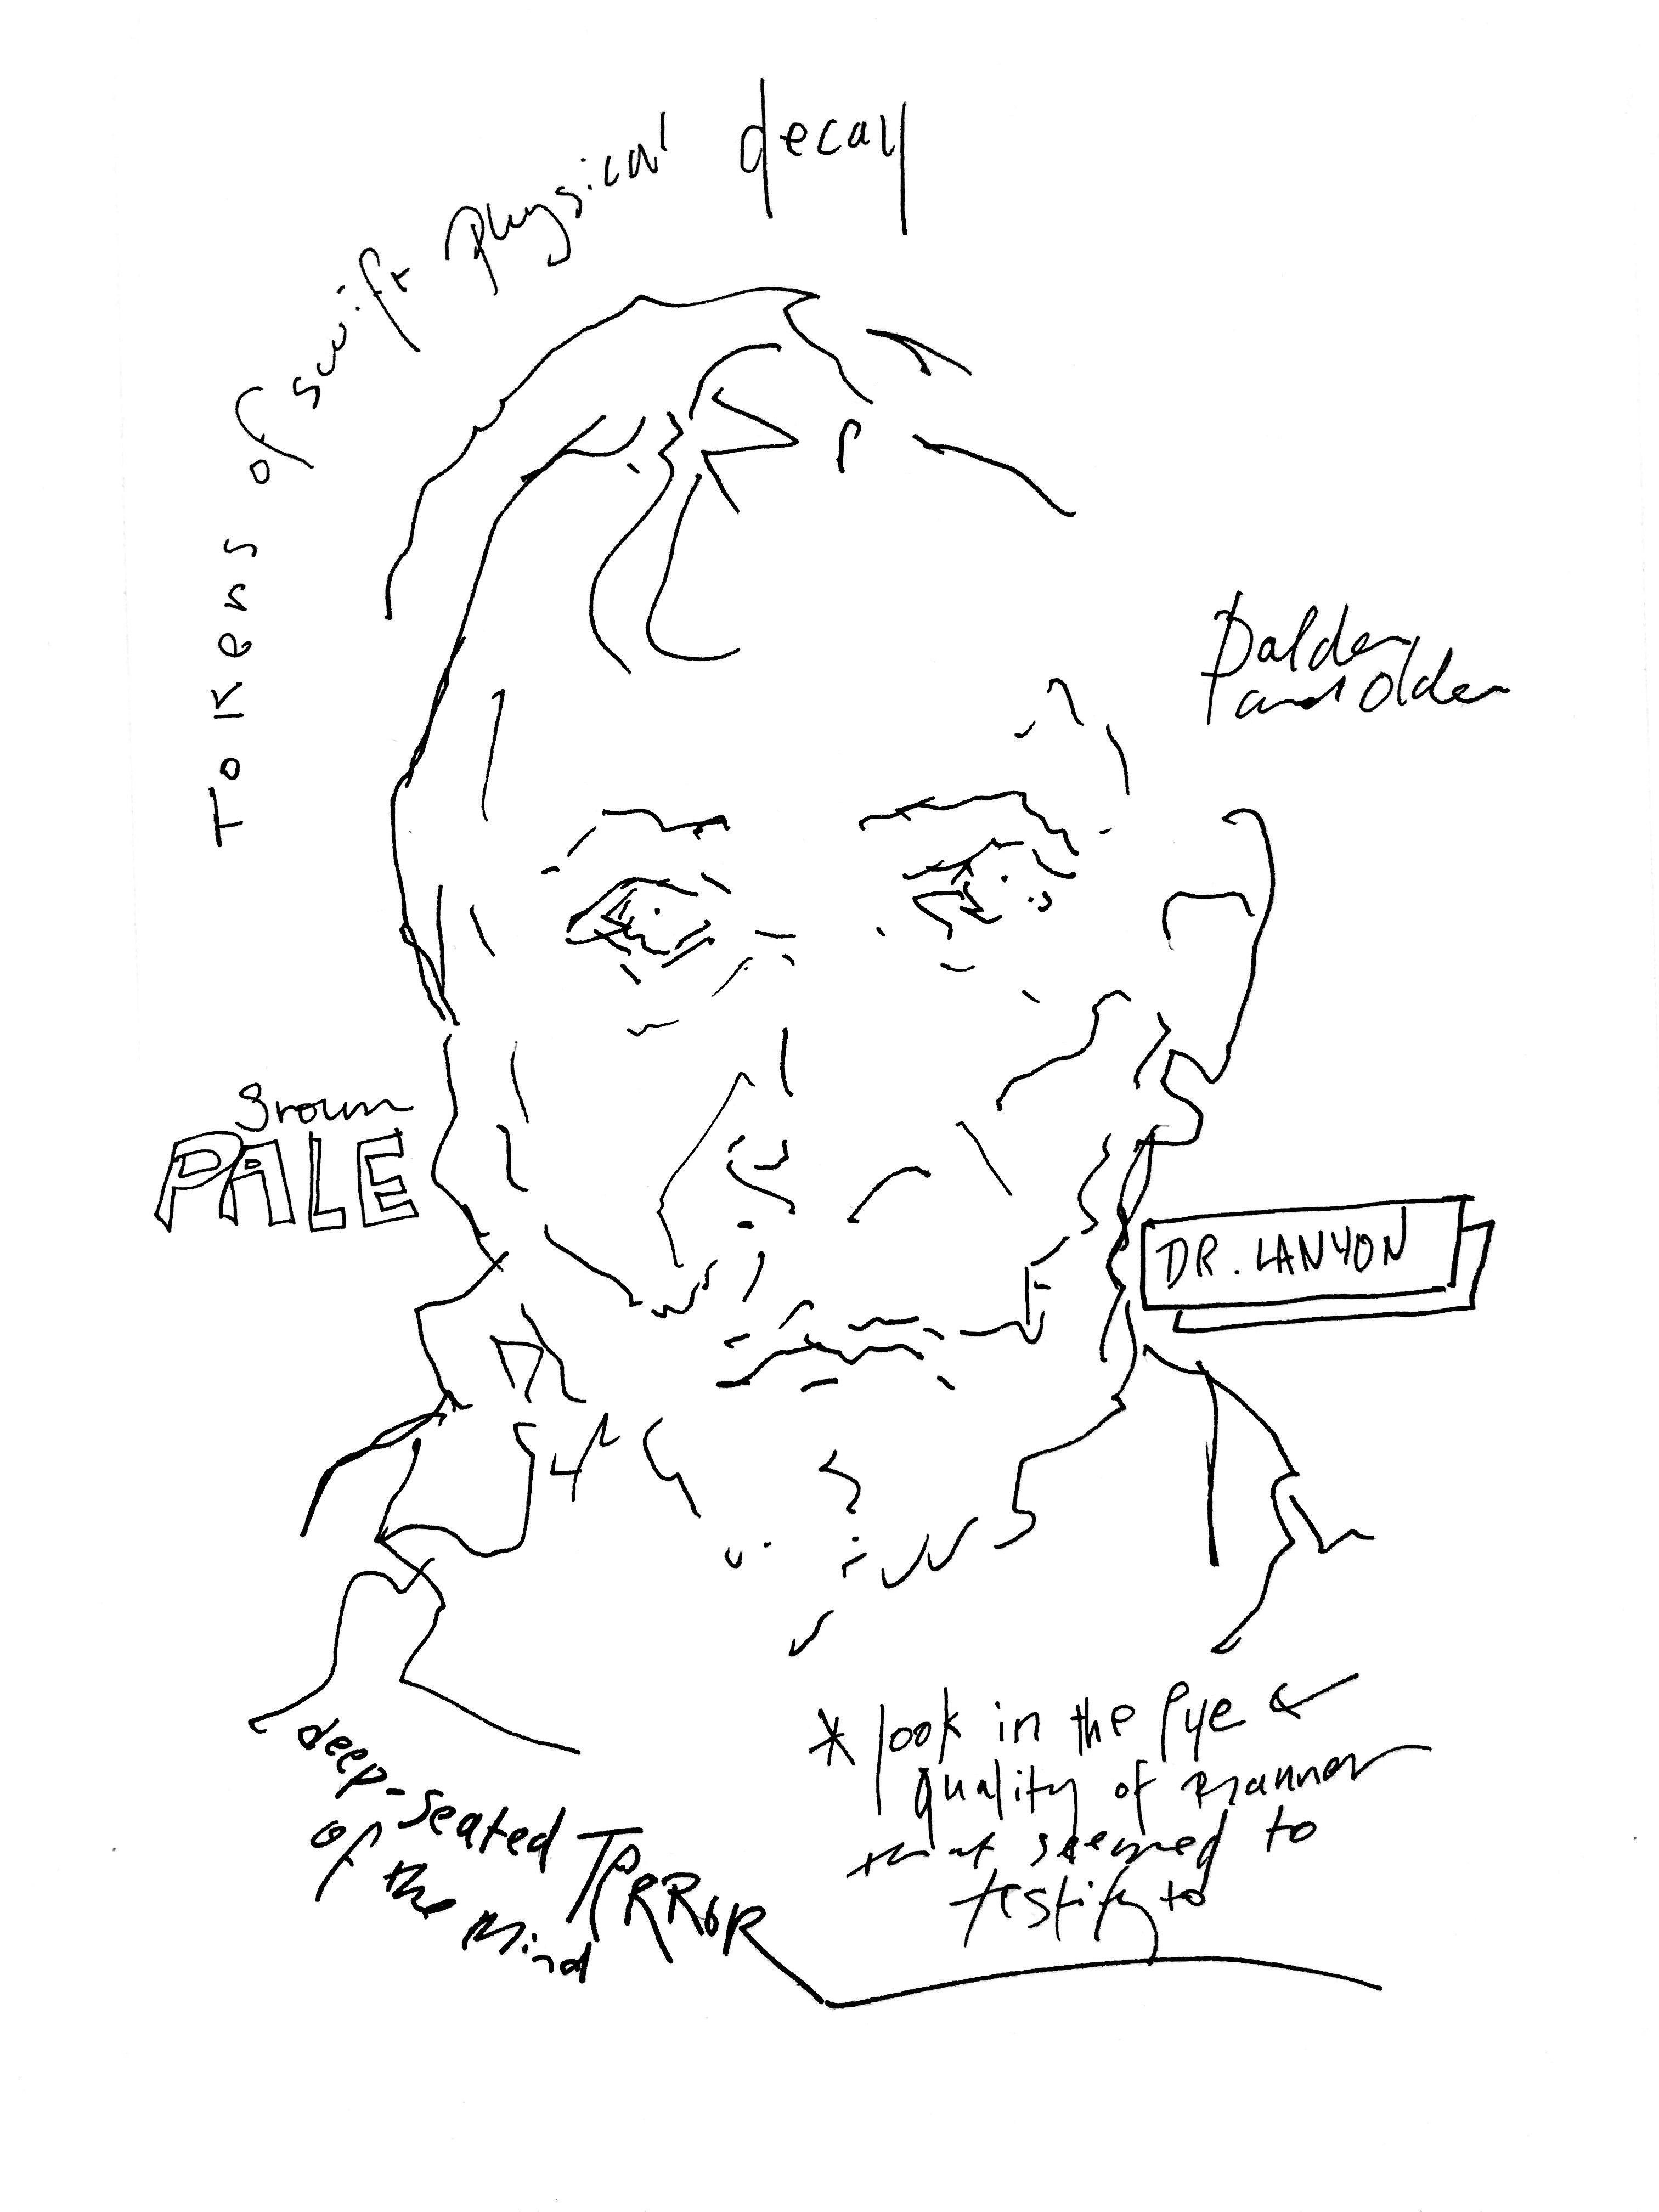 Tokens of swift physical decay
balder
and older
grown
PALE
DR. LANYON
* look in the eye &
quality of manner
that seemed to
testify to
deep-seated TERROR
of the Mind